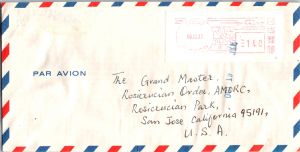 PAR AVION
The Grand Master,
Rosicrucian Order, AMORC,
Rosicrucian Park,
San Jose California 95191,
U.S.A.